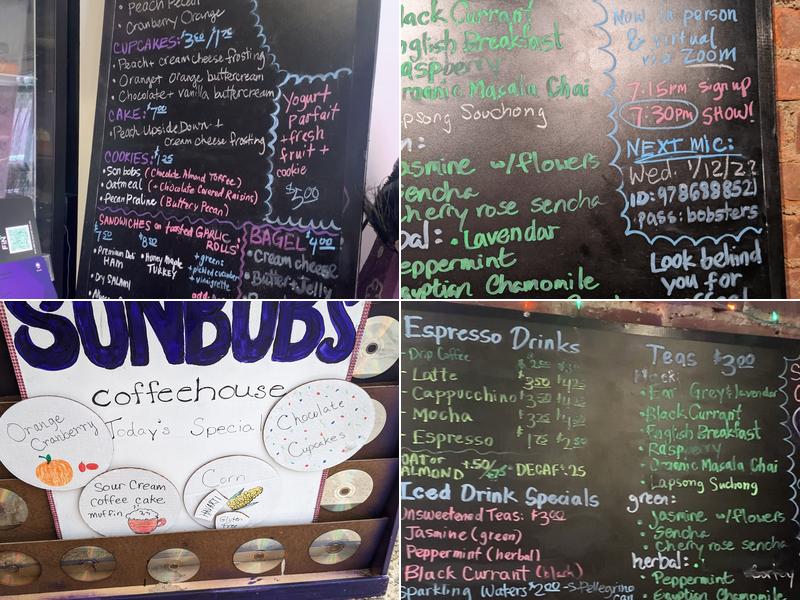 • Peach Pecan
• Cranberry Orange
CUPCAKES: $3.50/1.75
• Peach + cream cheese frosting
• Orange + orange buttercream
• Chocolate + vanilla buttercream
CAKE: $7.00
• Peach Upside Down +
cream cheese frosting
COOKIES: $1.25
• Sonbobs (Chocolate Almond Toffee)
• Oatmeal (+ Chocolate Covered Raisins)
• Pecan Praline (Buttery Pecan)
Yogurt
Parfait
+ fresh
fruit +
cookie
$5.00
SANDWICHES on toasted GARLIC
ROLLS
$7.50
• Premium Deli
HAM
• Dry SALAMI
• Honey Maple
TURKEY
+ greens
+ pickled cucumber
+ vinaigrette
BAGEL $4.00
• Cream cheese
• Butter + Jelly
lack Currant
nglish Breakfast
aspberry
rganic Masala Chai
apsong Souchong
n:
asmine w/flowers
encha
herry rose sencha
bal: • Lavendar
eppermint
gyptian Chamomile
Now in person
& virtual
via Zoom
7:15pm sign up
7:30pm SHOW!
NEXT MIC:
Wed. 1/12/22
ID: 9786988521
pass: bobsters
Look behind
you for
SONBOBS
coffeehouse
Today's Specia
Orange
Cranberry
Chocolate
Cupcakes
Sour Cream
coffee cake
muffin
Corn
HEART!
Gluten
free
Espresso Drinks
- Drip Coffee
- Latte $3.50 $4.25
- Cappuccino $3.50 $4.25
- Mocha
- Espresso $1.75 $2.50
OAT or
ALMOND +.50/ DECAF +.25
Iced Drink Specials
Unsweetened Teas: $3.00
Jasmine (green)
Peppermint (herbal)
Black Currant (black)
Sparkling Waters $2.00 - S. Pellegrino
can
Teas $3.00
Black:
• Earl Grey + lavendar
• Black Currant
• English Breakfast
• Raspberry
• Organic Masala Chai
• Lapsong Suchong
green:
• Jasmine w/flowers
• Sencha
• Cherry rose sencha
herbal: •
• Peppermint
• Egyptian Chamomile